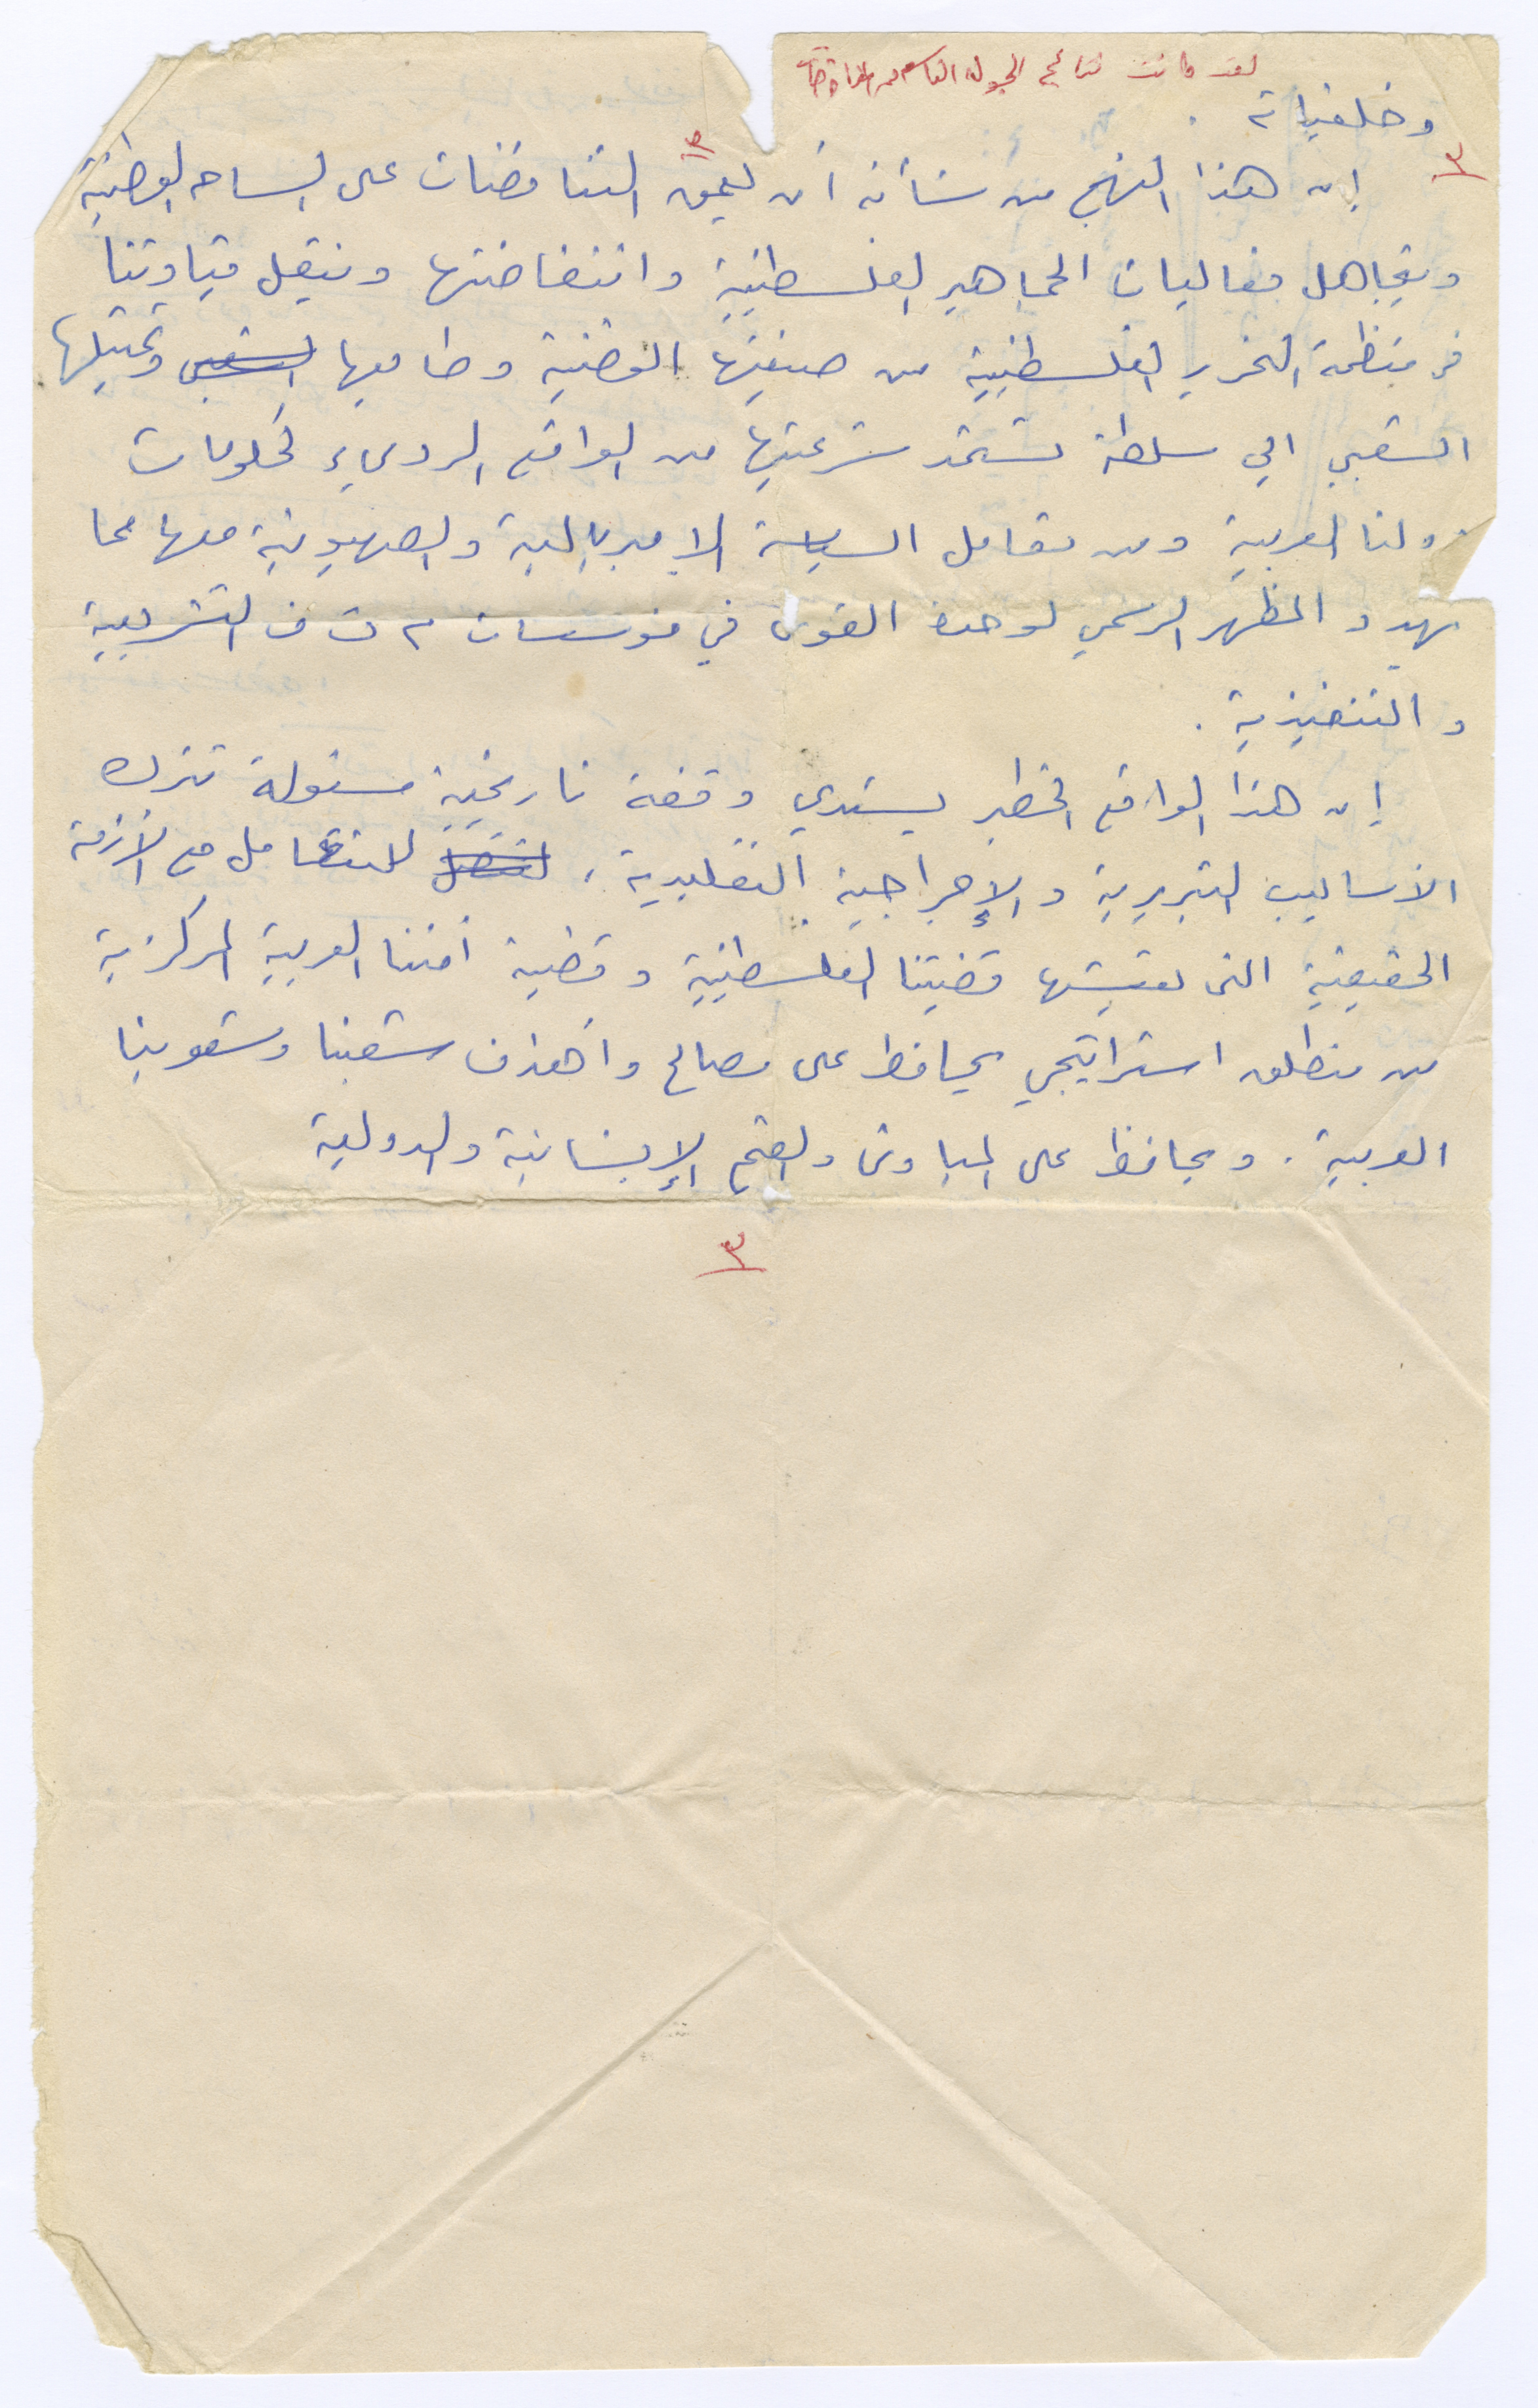 لقد كانت نتائج الجولة
وخلفياته .
٣
٣
إن هذا النهج من شأنه أن يعمق التناقضات على الساحه الوطنية
ويتجاهل فعاليات الجماهير الفلسطينية وانتفاضتها وينقل قيادتنا
في منظمة التحرير الفلسطينية من صيغتها الوطنية وطابعها الشعبي وتمثيلها
الشعبي الي سلطة تستمد شرعيتها من الواقع الرديء لحكومات
دولنا العربية ومن تعامل السياسة الامبريالية والصهيونية معها مما
يهدد المظهر الرسمي لوحدة القوى في مؤسسات م ت ف التشريعية
والتنفيذية .
إن هذا الواقع الخطير يستدي وقفة تاريخية مسئولة تترك
الأساليب التبريرية والإجرائية التقليدية ، للتعامل مع الأزمة
الحقيقية التي تعيشها قضيتنا الفلسطينية وقضية أمتنا العربية المركزية
من منطلق استراتيجي يحافظ على مصالح وأهداف شعبنا وشعوبنا
العربية . ويحافظ على المبادئ والقيم الإنسانية والدولية
٣